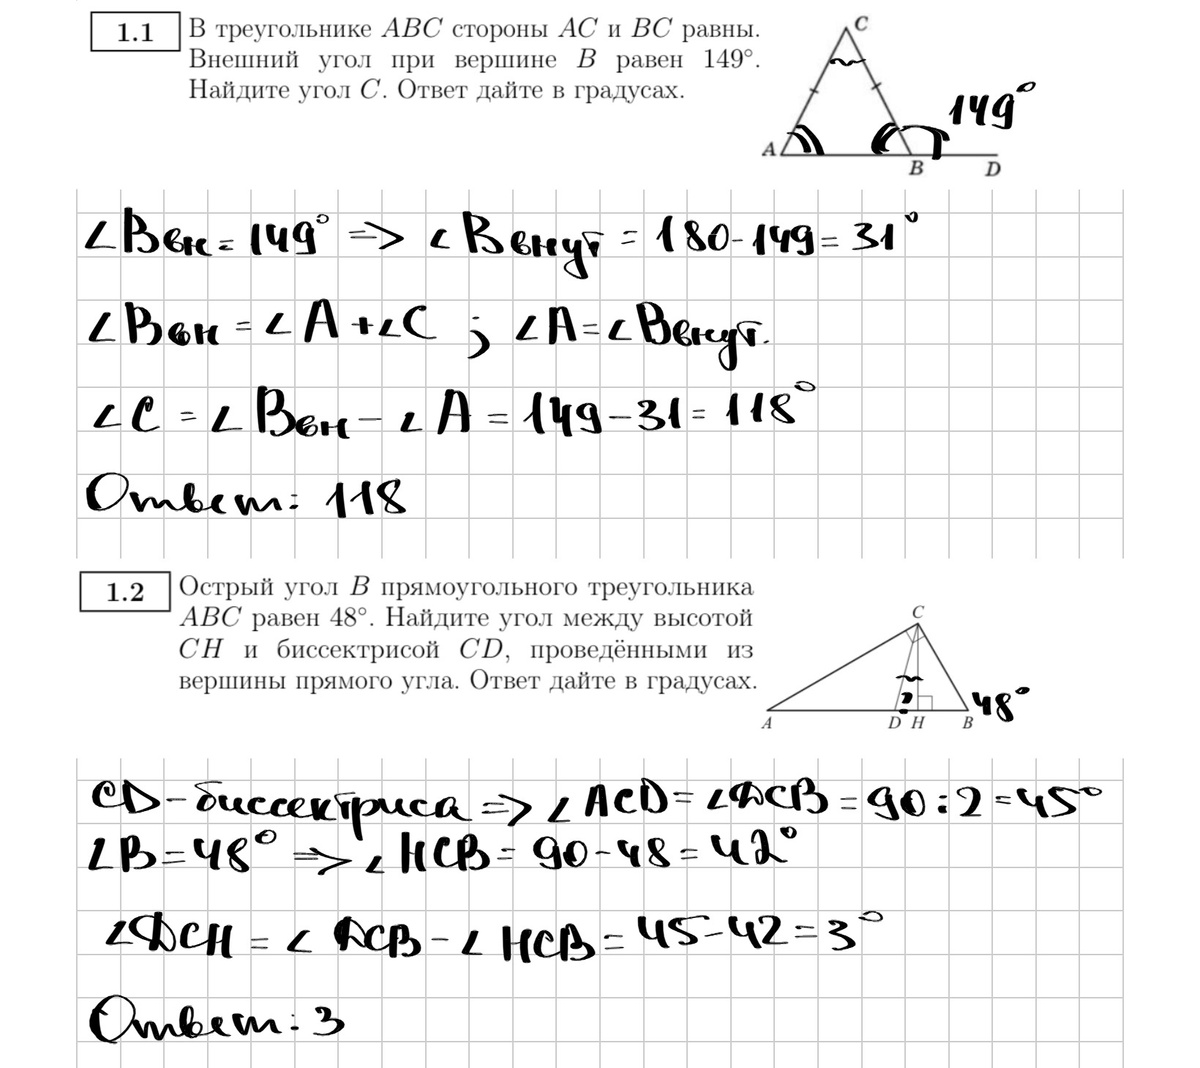 1.1 В треугольнике ABC стороны AC и BC равны.
Внешний угол при вершине B равен 149°.
Найдите угол C. Ответ дайте в градусах.
C
149°
A
B
D
∠Bвн = 149° => ∠Bвнут = 180 - 149 = 31°
∠Bвн = ∠A + ∠C ; ∠A = ∠Bвнут.
∠C = ∠Bвн - ∠A = 149 - 31 = 118°
Ответ: 118
1.2 Острый угол B прямоугольного треугольника
ABC равен 48°. Найдите угол между высотой
CH и биссектрисой CD, проведёнными из
вершины прямого угла. Ответ дайте в градусах.
C
?
48°
A
D H
B
CD - биссектриса => ∠ACD = ∠DCB = 90 : 2 = 45°
∠B = 48° => ∠HCB = 90 - 48 = 42°
∠DCH = ∠DCB - ∠HCB = 45 - 42 = 3°
Ответ: 3